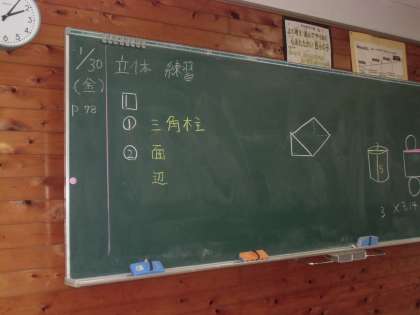 1/30 立体 練習
(金)
P.78
1
① 三角柱
② 面
辺
5
3 × 3.14